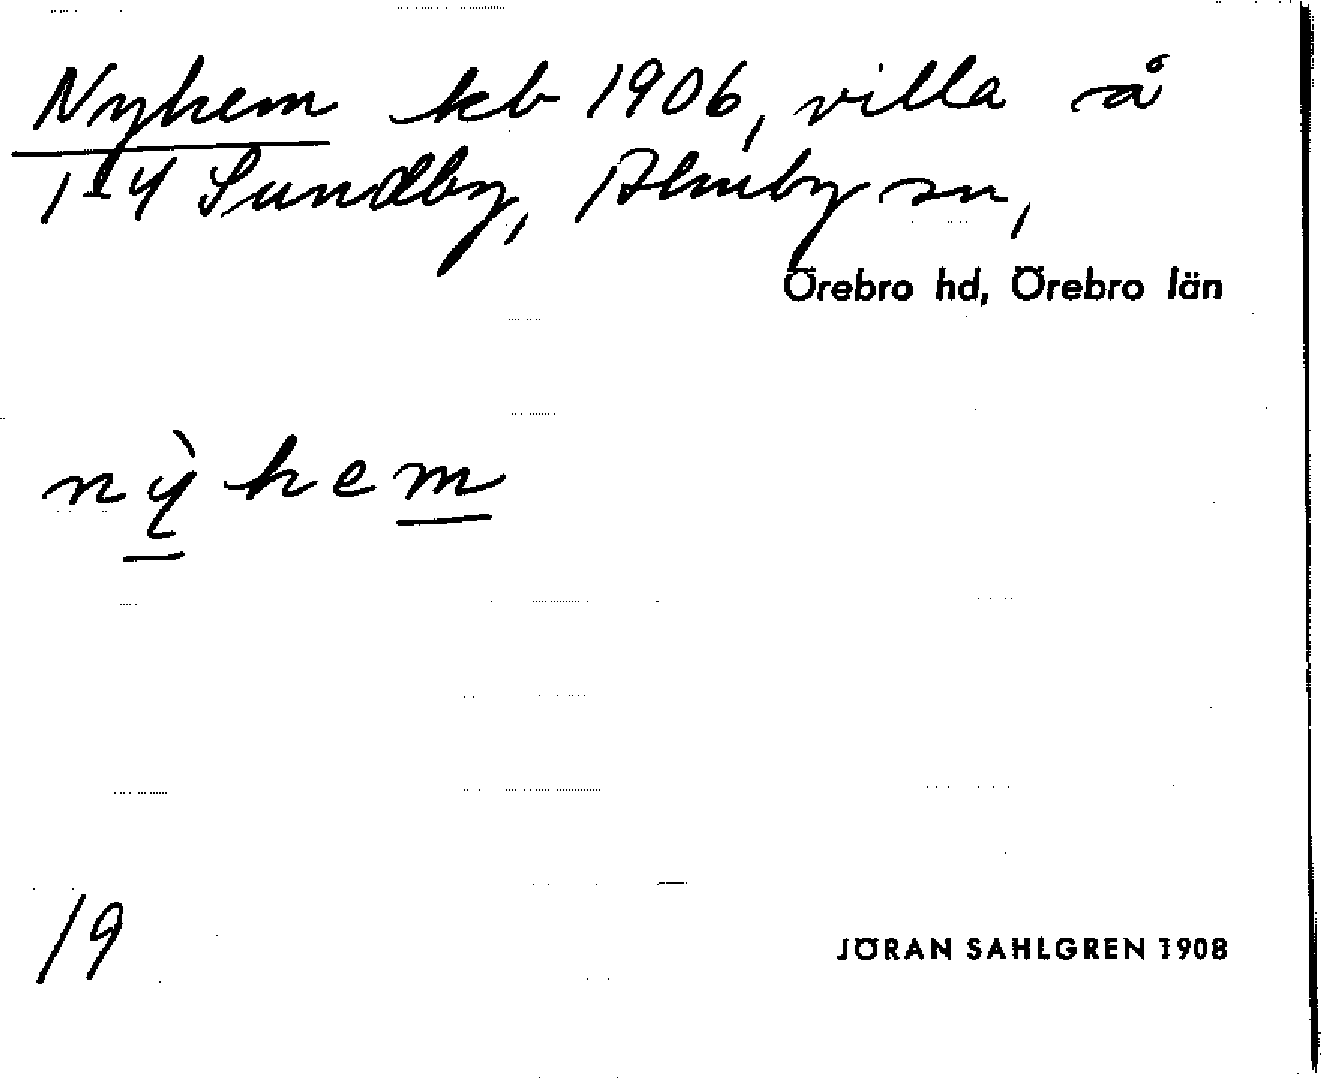 Nyhem kb 1906, villa å
1-4 Sundby, Almby sn,
Örebro hd, Örebro län
nỳhem
19
JÖRAN SAHLGREN 1908